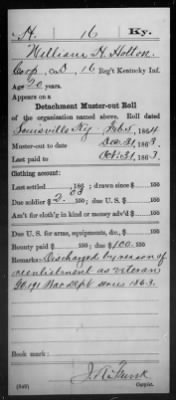 H. 16 Ky.
William H. Holton
Corp, Co. D, 16 Reg't Kentucky Inf.
Age 20 years.
Appears on a
Detachment Muster-out Roll
of the organization named above. Roll dated
Louisville Ky Feb. 1, 1864
Muster-out to date Dec. 31, 1863.
Last paid to Oct. 31, 1863.
Clothing account:
Last settled 186 ; drawn since $ 100
Due soldier $ 100; due U. S. $ 100
Am't for cloth'g in kind or money adv'd $ 100
Due U. S. for arms, equipments, &c., $ 100
Bounty paid $ 100; due $ 100 100
Remarks: Discharged by reason of
reenlistment as veteran
G.O. 191 War Dept series 1863.
Book mark:
(849) Copyist.